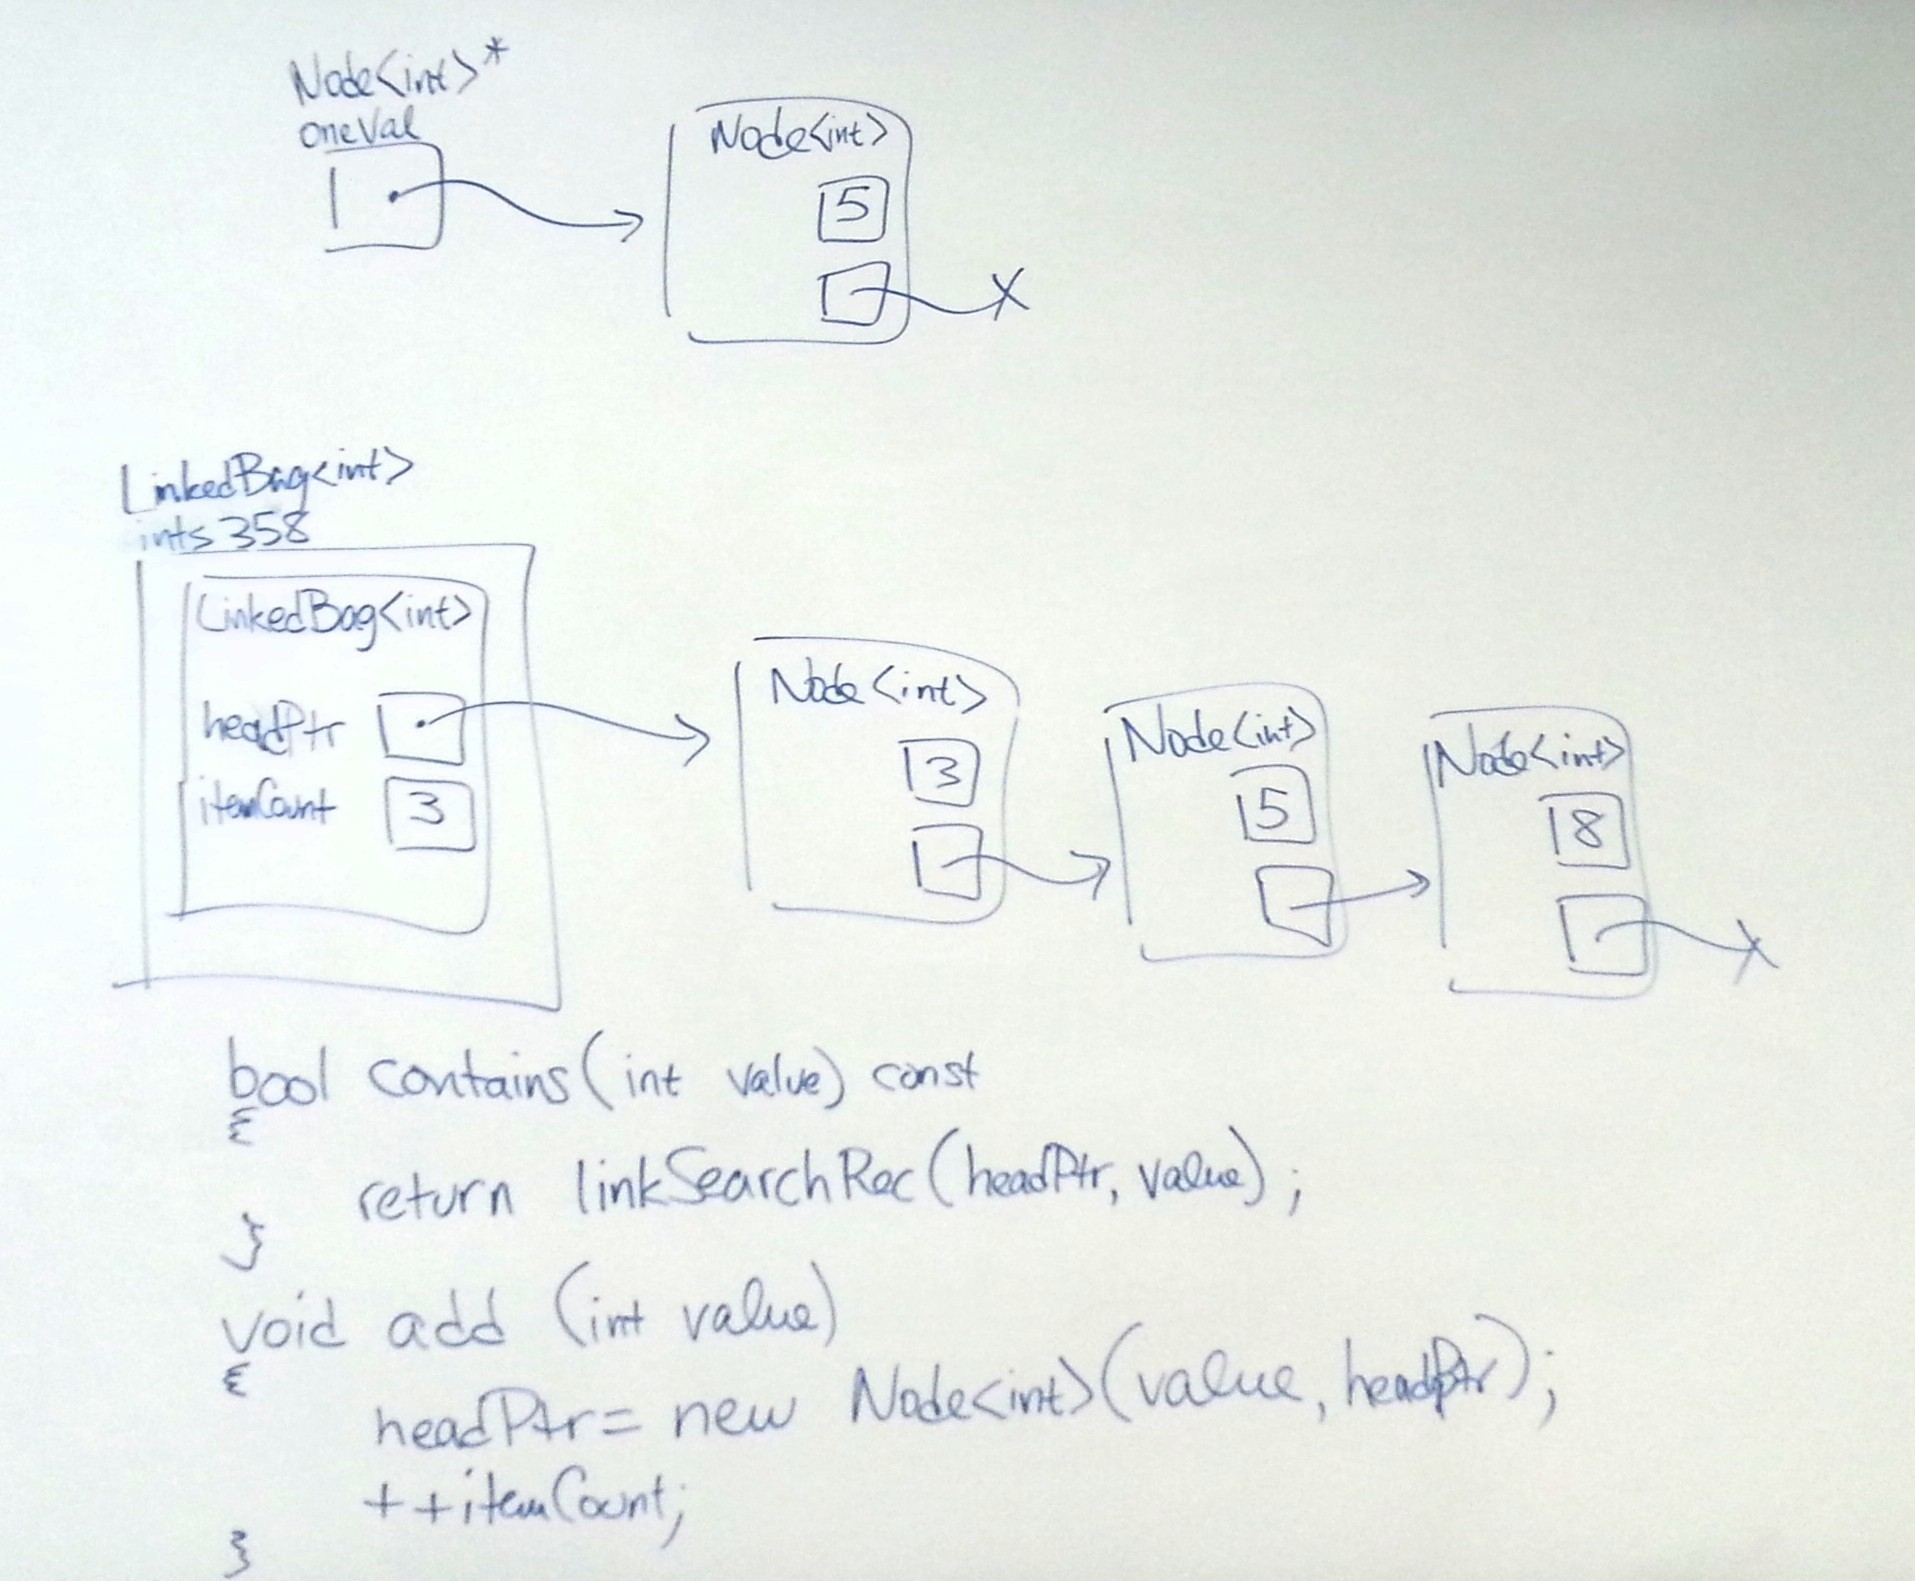 Node<int>*
oneVal
Node<int>
5
X
LinkedBag<int>
ints358
LinkedBag<int>
headPtr
itemCount 3
Node<int>
3
Node<int>
5
Node<int>
8
X
bool contains(int value) const
{
return linkSearchRec(headPtr, value);
}
void add (int value)
{
headPtr = new Node<int>(value, headPtr);
++itemCount;
}